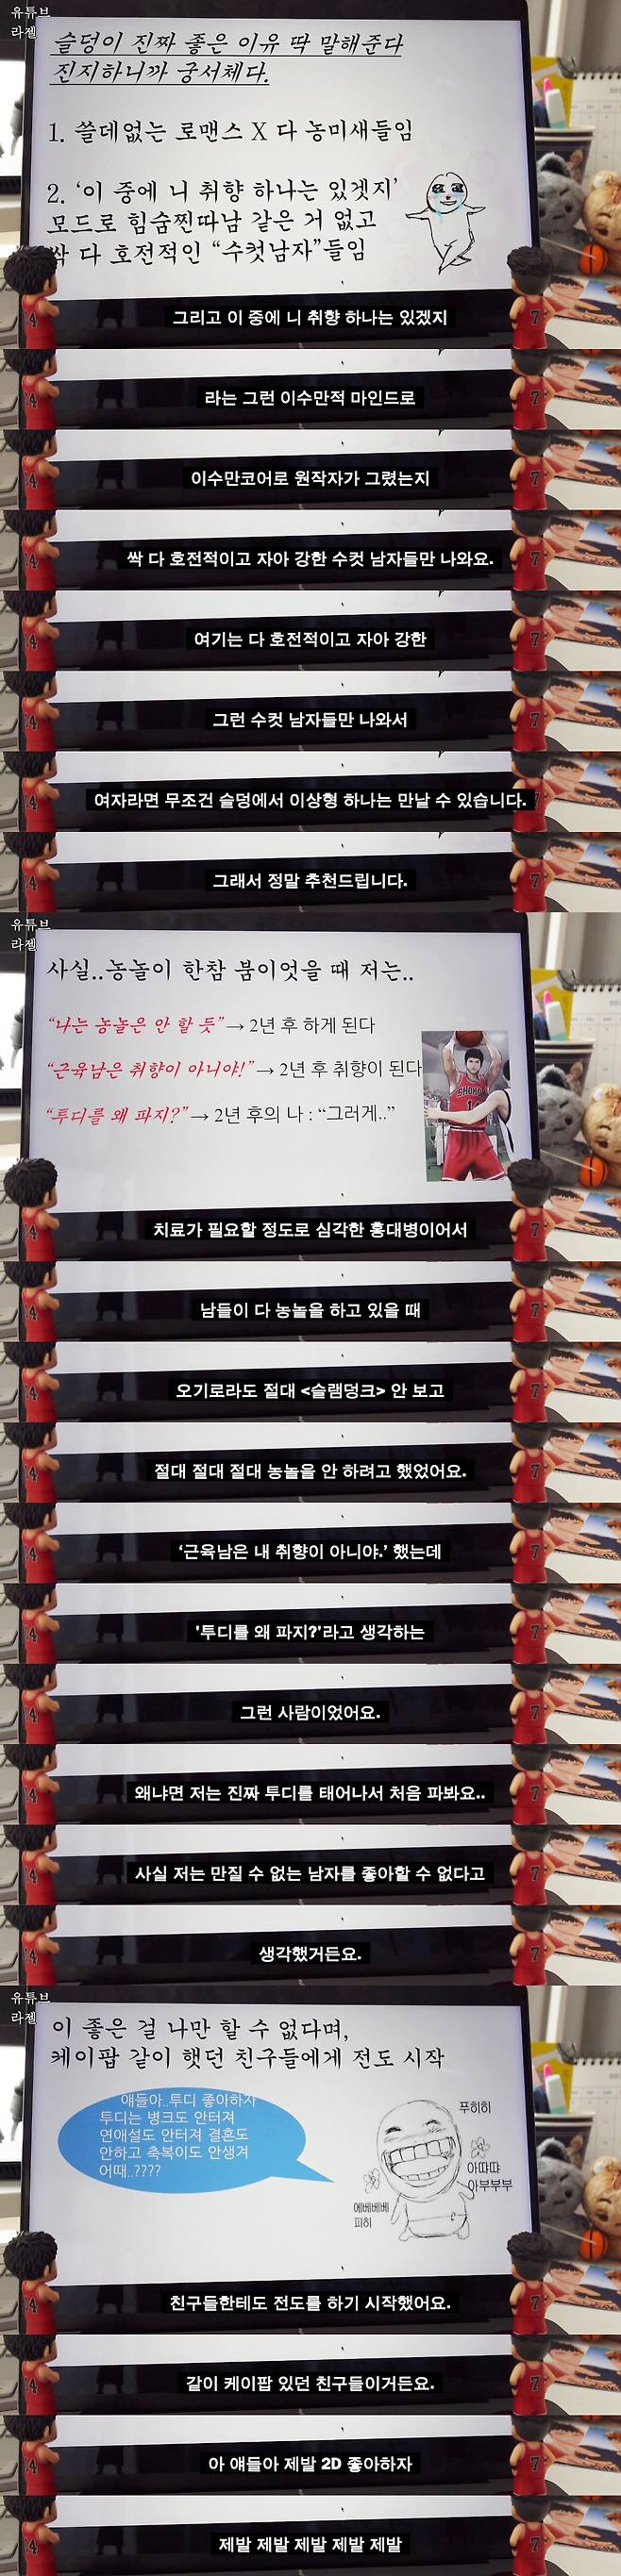 유튜브
라젤
슬덩이 진짜 좋은 이유 딱 말해준다
진지하니까 궁서체다.
1. 쓸데없는 로맨스 X 다 농미새들임
2. ‘이 중에 니 취향 하나는 있겟지’
모드로 힘숨찐따남 같은 거 없고
싹 다 호전적인 “수컷남자”들임
14
7
그리고 이 중에 니 취향 하나는 있겠지
14
7
라는 그런 이수만적 마인드로
14
7
이수만코어로 원작자가 그렸는지
14
7
싹 다 호전적이고 자아 강한 수컷 남자들만 나와요.
14
7
여기는 다 호전적이고 자아 강한
14
7
그런 수컷 남자들만 나와서
14
7
여자라면 무조건 슬덩에서 이상형 하나는 만날 수 있습니다.
14
그래서 정말 추천드립니다.
14
7
유튜브
라젤
사실..농놀이 한참 붐이엇을 때 저는..
“나는 농놀은 안 할 듯”→ 2년 후 하게 된다
“근육남은 취향이 아니야!”→ 2년 후 취향이 된다
“투디를 왜 파지?”→ 2년 후의 나 : “그러게..”
14
7
치료가 필요할 정도로 심각한 홍대병이어서
14
7
남들이 다 농놀을 하고 있을 때
14
7
오기로라도 절대 <슬램덩크> 안 보고
14
7
절대 절대 절대 농놀을 안 하려고 했었어요.
14
7
‘근육남은 내 취향이 아니야.’ 했는데
14
7
'투디를 왜 파지?'라고 생각하는
14
7
그런 사람이었어요.
14
7
왜냐면 저는 진짜 투디를 태어나서 처음 파봐요..
14
7
사실 저는 만질 수 없는 남자를 좋아할 수 없다고
14
7
생각했거든요.
14
7
유튜브
라젤
이 좋은 걸 나만 할 수 없다며,
케이팝 같이 햇던 친구들에게 전도 시작
얘들아..투디 좋아하자
투디는 병크도 안터져
연애설도 안터져 결혼도
안하고 축복이도 안생겨
어때..????
푸히히
아땨땨
아부부부
에베베베
피히
14
7
친구들한테도 전도를 하기 시작했어요.
14
7
같이 케이팝 있던 친구들이거든요.
14
7
아 얘들아 제발 2D 좋아하자
14
7
제발 제발 제발 제발 제발
14
7